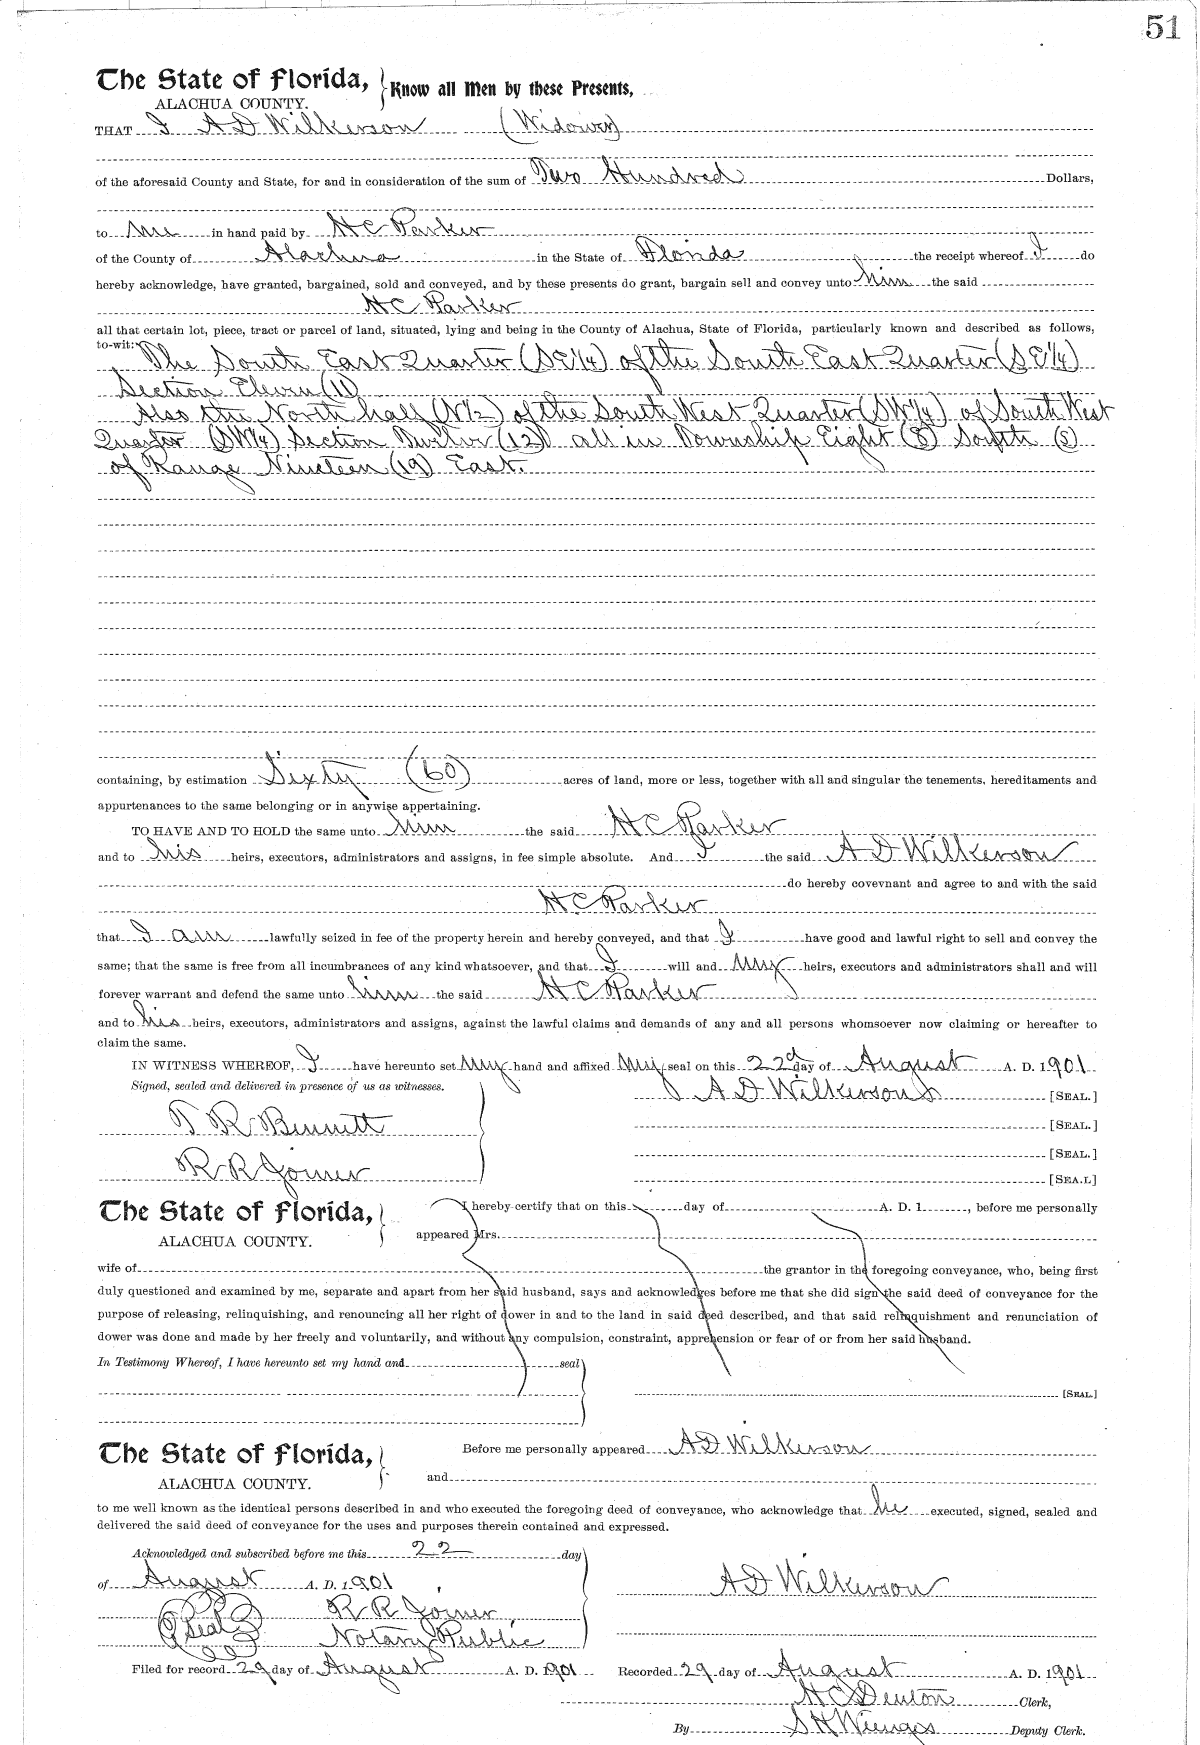 51
The State of Florida, } Know all Men by these Presents,
ALACHUA COUNTY.
THAT I A D Wilkerson (Widower)
of the aforesaid County and State, for and in consideration of the sum of Two Hundred Dollars,
to me in hand paid by H C Parker
of the County of Alachua in the State of Florida the receipt whereof I do
hereby acknowledge, have granted, bargained, sold and conveyed, and by these presents do grant, bargain sell and convey unto him the said
H C Parker
all that certain lot, piece, tract or parcel of land, situated, lying and being in the County of Alachua, State of Florida, particularly known and described as follows,
to-wit: The South East Quarter (S E 1/4) of the South East Quarter (S E 1/4)
Section Eleven (11)
Also the North half (N 1/2) of the South West Quarter (S W 1/4) of South West
Quarter (S W 1/4) Section Twelve (12) all in Township Eight (8) South (S)
of Range Nineteen (19) East.
containing, by estimation Sixty (60) acres of land, more or less, together with all and singular the tenements, hereditaments and
appurtenances to the same belonging or in anywise appertaining.
TO HAVE AND TO HOLD the same unto him the said H C Parker
and to his heirs, executors, administrators and assigns, in fee simple absolute. And I the said A D Wilkerson
do hereby covevnant and agree to and with the said
H C Parker
that I am lawfully seized in fee of the property herein and hereby conveyed, and that I have good and lawful right to sell and convey the
same; that the same is free from all incumbrances of any kind whatsoever, and that I will and my heirs, executors and administrators shall and will
forever warrant and defend the same unto him the said H C Parker
and to his heirs, executors, administrators and assigns, against the lawful claims and demands of any and all persons whomsoever now claiming or hereafter to
claim the same.
IN WITNESS WHEREOF, I have hereunto set my hand and affixed my seal on this 22d day of August A. D. 1901
Signed, sealed and delivered in presence of us as witnesses. A D Wilkerson [SEAL.]
T R Bennett [SEAL.]
[SEAL.]
R R Joiner [SEA.L]
The State of Florida, } I hereby certify that on this day of A. D. 1 , before me personally
ALACHUA COUNTY. appeared Mrs.
wife of the grantor in the foregoing conveyance, who, being first
duly questioned and examined by me, separate and apart from her said husband, says and acknowledges before me that she did sign the said deed of conveyance for the
purpose of releasing, relinquishing, and renouncing all her right of dower in and to the land in said deed described, and that said relinquishment and renunciation of
dower was done and made by her freely and voluntarily, and without any compulsion, constraint, apprehension or fear of or from her said husband.
In Testimony Whereof, I have hereunto set my hand and seal
[SEAL.]
The State of Florida, } Before me personally appeared A D Wilkerson
ALACHUA COUNTY. and
to me well known as the identical persons described in and who executed the foregoing deed of conveyance, who acknowledge that he executed, signed, sealed and
delivered the said deed of conveyance for the uses and purposes therein contained and expressed.
Acknowledged and subscribed before me this 22 day
of August A. D. 1901 A D Wilkerson
Seal R R Joiner
Notary Public
Filed for record 29 day of August A. D. 1901 Recorded 29 day of August A. D. 1901
H C Denton Clerk,
By S H Wienges Deputy Clerk.